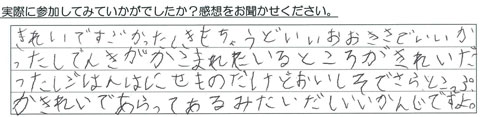 実際に参加してみていかがでしたか？感想をお聞かせください。
きれいですごかったしきもちゃうどいいおおきさでいいか
ったしでんきがかこまれたいるところがきれいだ
ったしごはんはにせものだけどおいしそでさらとコップ
がきれいであらってあるみたいだしいいかんじですよ。